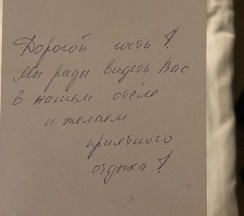 Дорогой гость!
Мы рады видеть Вас
в нашем отеле
и желаем
приятного
отдыха!